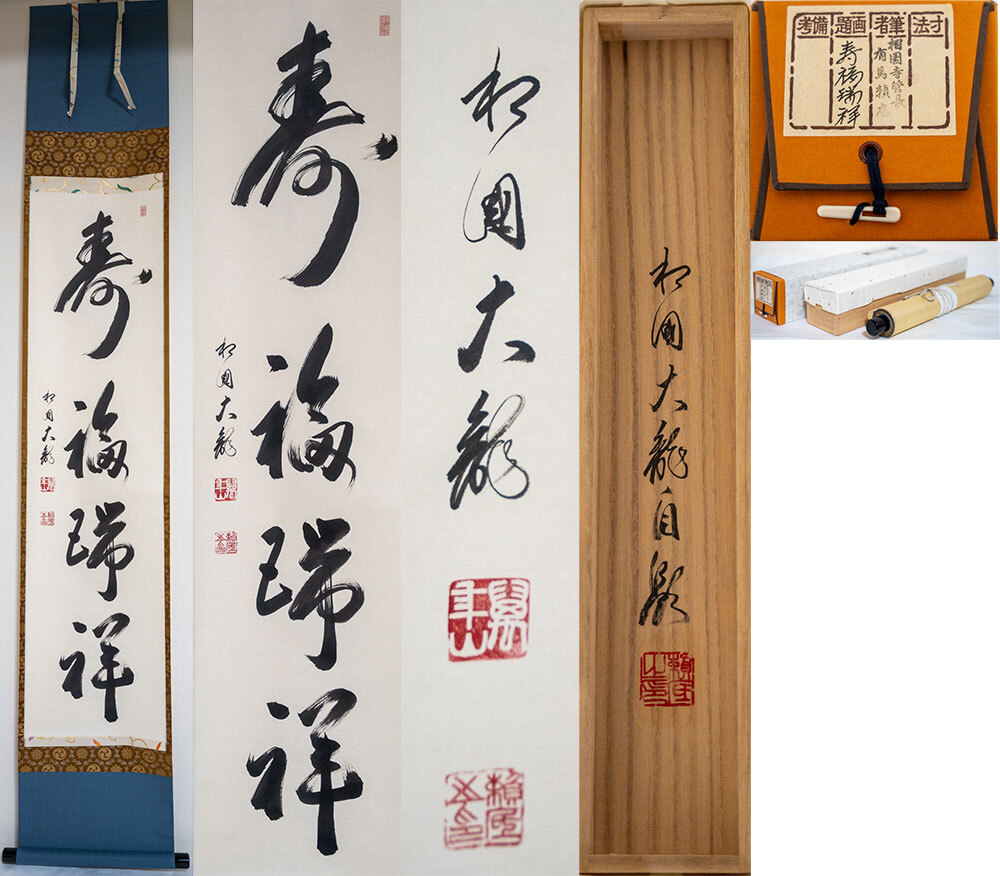 寿福瑞祥
相国大龍
寿福瑞祥
相国大龍
相国大龍
萬年山
相国大龍自題
備考
画題
筆者
寸法
相国寺管長
有馬頼底
寿福瑞祥